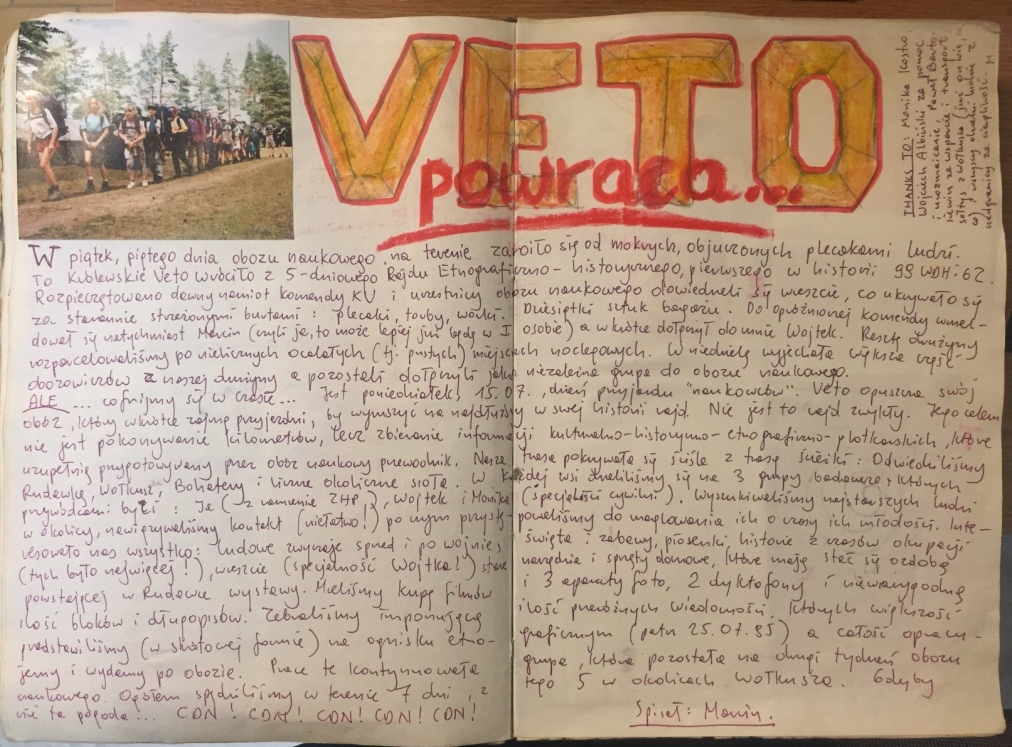 VETO
powraca...
THANKS TO: Monika Kostro
Wojciech Albiński za pomoc
i urozmaicanie, Paweł Barto-
za wsparcie i transport
sołtys z Wołkusza
W piątek, piątego dnia obozu naukowego na terenie zaroiło się od mokrych, objuczonych plecakami ludzi.
To Królewskie Veto wróciło z 5-dniowego Rajdu Etnograficzno-historycznego, pierwszego w historii 99 WDH i 62.
Rozpieczętowano dawny namiot komendy KV i uczestnicy obozu naukowego dowiedzieli się wreszcie, co ukrywało się
za starannie strzeżonymi burtami: plecaki, torby, worki. Dziesiątki sztuk bagażu. Do opróżnionej komendy wmel-
dował się natychmiast Marcin (czyli ja, to może lepiej już będę w I osobie) a wkrótce dołączył do mnie Wojtek. Resztę drużyny
rozparcelowaliśmy po nielicznych ocalałych (tj. pustych) miejscach noclegowych. W niedzielę wyjechała większa część
obozowiczów z naszej drużyny a pozostali dołączyli jako niezależna grupa do obozu naukowego.
ALE ... cofnijmy się w czasie... Jest poniedziałek, 15.07., dzień przyjazdu "naukowców". Veto opuszcza swój
obóz, który wkrótce zajmą przyjezdni, by wyruszyć na najdłuższy w swej historii rajd. Nie jest to rajd zwykły. Jego celem
nie jest pokonywanie kilometrów, lecz zbieranie informacji kulturalno-historyczno-etnograficzno-plotkarskich, które
uzupełnią przygotowywany przez obóz naukowy przewodnik. Nasza trasa pokrywała się ściśle z trasą ścieżki: Odwiedziliśmy
Rudawkę, Wołkusz, Bohatery i liczne okoliczne sioła. W każdej wsi dzieliliśmy się na 3 grupy badawcze, których
przywódcami byli: Ja (z ramienia ZHP), Wojtek i Monika (specjaliści cywilni). Wyszukiwaliśmy najstarszych ludzi
w okolicy, nawiązywaliśmy kontakt (niełatwo!) po czym przystę-powaliśmy do maglowania ich o czasy ich młodości. Inte-
resowało nas wszystko: ludowe zwyczaje sprzed i po wojnie, święta i zabawy, piosenki, historie z czasów okupacji
(tych było najwięcej!), wreszcie (specjalność Wojtka!) stare narzędzia i sprzęty domowe, które mają stać się ozdobą
powstającej w Rudawce wystawy. Mieliśmy kupę filmów i 3 aparaty foto, 2 dyktafony i niewiarygodną
ilość bloków i długopisów. Zebraliśmy imponującą ilość przeróżnych wiadomości, których większość
przedstawiliśmy (w skrótowej formie) na ognisku etno-graficznym (patrz 25.07.95) a całość opracu-
jemy i wydamy po obozie. Prace te kontynuowała grupa, która pozostała na drugi tydzień obozu
naukowego. Ogółem spędziliśmy w terenie 7 dni, z tego 5 w okolicach Wołkusza. Gdyby
nie ta pogoda!... CDN! CDN! CDN! CDN! CDN!
Spisał: Marcin.